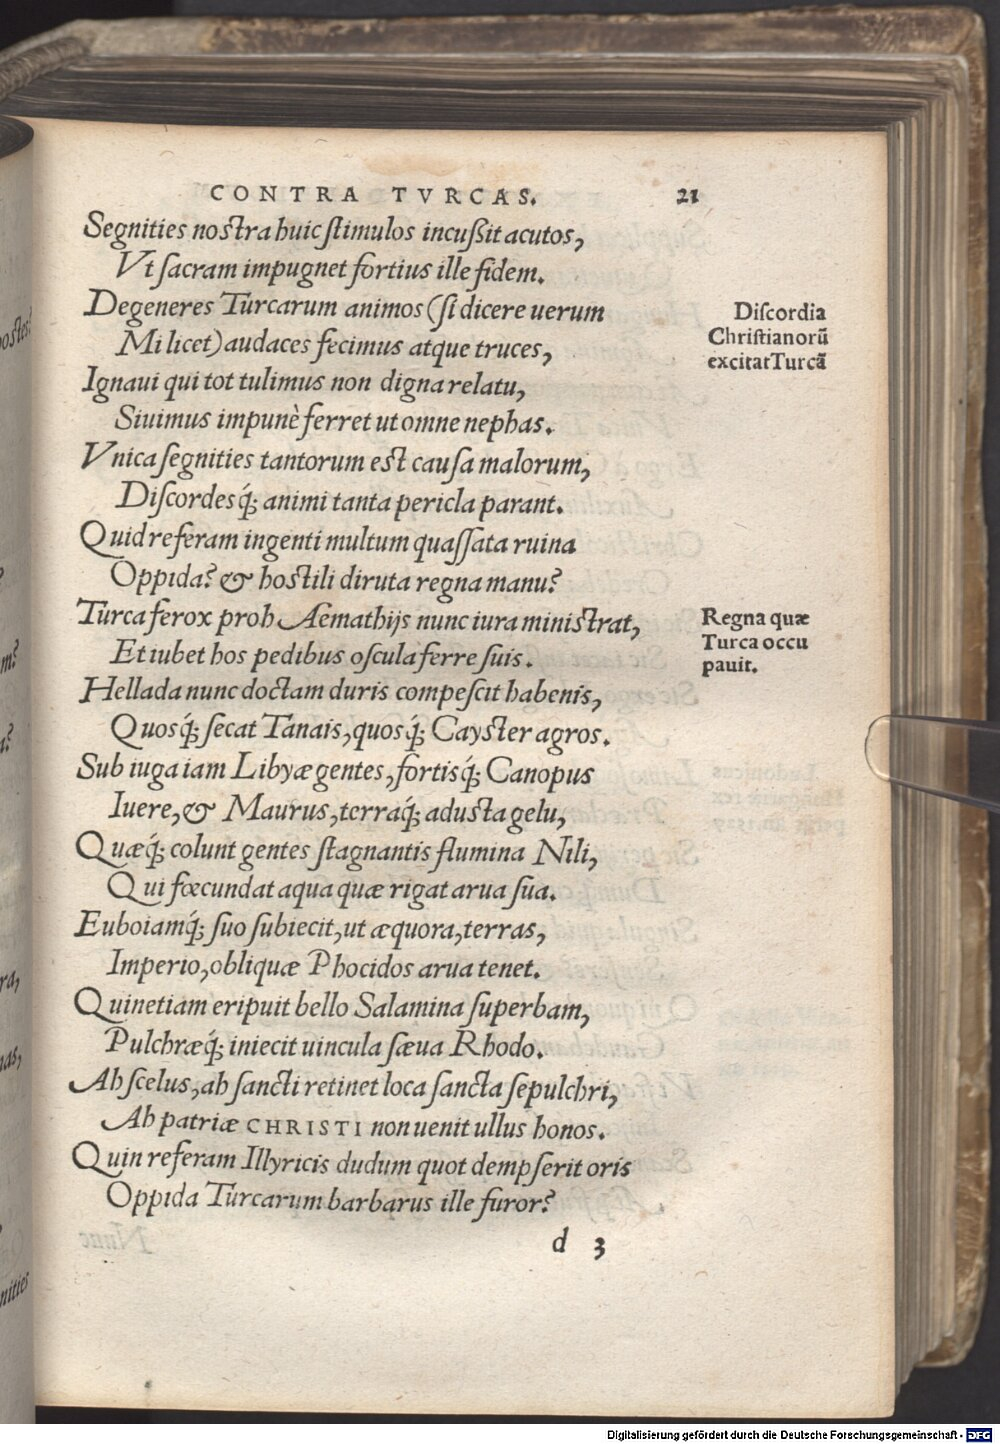 CONTRA TVRCAS. 21
Segnities nostra huic stimulos incußit acutos,
Vt sacram impugnet fortius ille fidem.
Degeneres Turcarum animos (si dicere uerum
Mi licet) audaces fecimus atque truces,
Ignaui qui tot tulimus non digna relatu,
Siuimus impunè ferret ut omne nephas.
Vnica segnities tantorum est causa malorum,
Discordesq́; animi tanta pericla parant.
Quid referam ingenti multum quassata ruina
Oppida? & hostili diruta regna manu?
Turca ferox proh Aemathijs nunc iura ministrat,
Et iubet hos pedibus oscula ferre suis.
Hellada nunc doctam duris compescit habenis,
Quosq́; secat Tanais, quosq́; Cayster agros.
Sub iuga iam Libyæ gentes, fortisq́; Canopus
Iuere, & Maurus, terraq́; adusta gelu,
Quæq́; colunt gentes stagnantis flumina Nili,
Qui fœcundat aqua quæ rigat arua sua.
Euboiamq́; suo subiecit, ut æquora, terras,
Imperio, obliquæ Phocidos arua tenet.
Quinetiam eripuit bello Salamina superbam,
Pulchræq́; iniecit uincula sæua Rhodo.
Ah scelus, ah sancti retinet loca sancta sepulchri,
Ah patriæ CHRISTI non uenit ullus honos.
Quin referam Illyricis dudum quot dempserit oris
Oppida Turcarum barbarus ille furor?
d 3
Discordia
Christianorũ
excitat Turcã
Regna quæ
Turca occu
pauit.
Digitalisierung gefördert durch die Deutsche Forschungsgemeinschaft - DFG